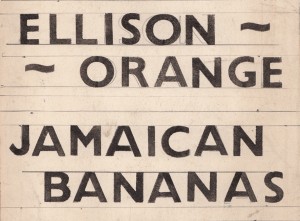 ELLISON ~
~ ORANGE
JAMAICAN
BANANAS